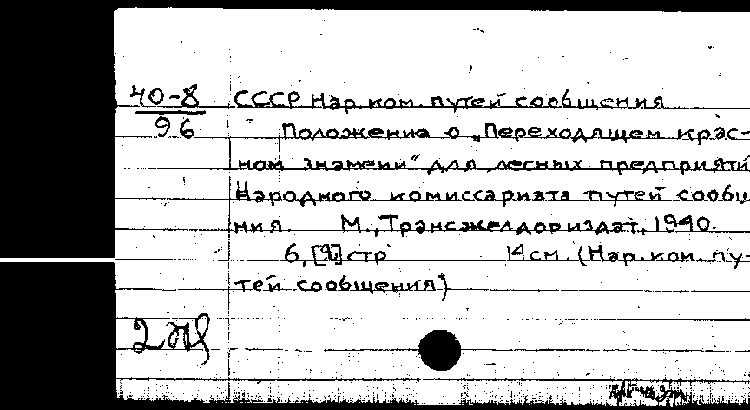 40-8
96
СССР Нар.ком. путей сообщения
Положение о „Переходящем крас-
ном знамени" для лесных предприяти
Народного комиссариата путей сообщ
ния. М., Трансжелдориздат, 1940.
6, [1] стр 14 см. (Нар.ком. пу-
тей сообщения)